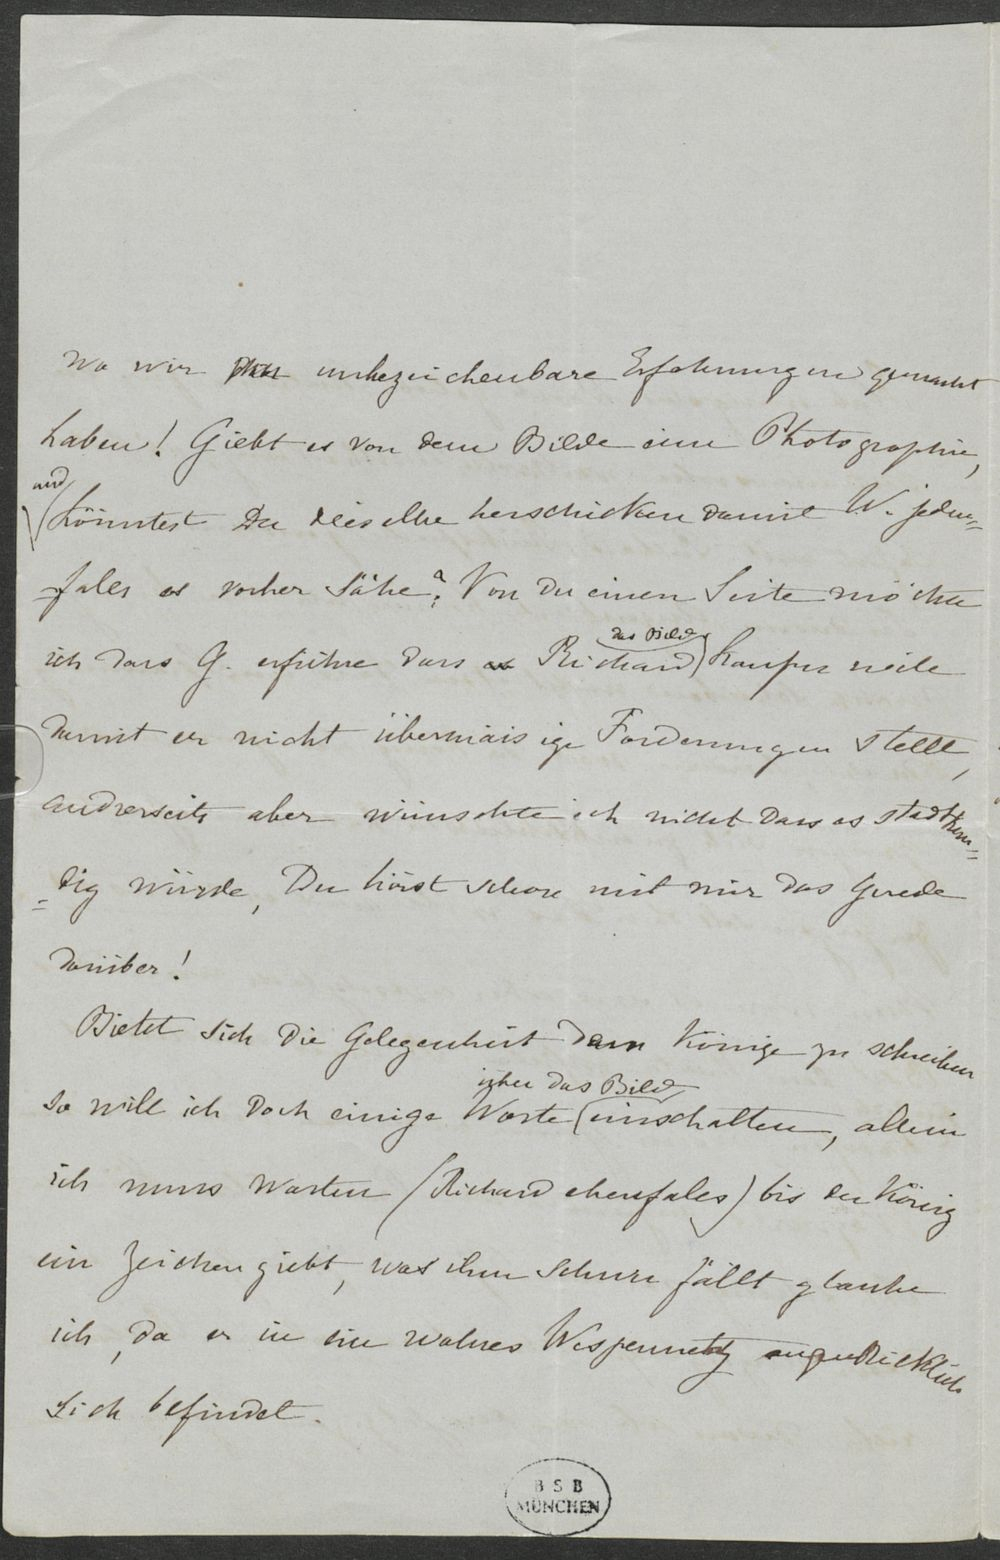 wo wir unbezeichenbare Erfahrungen gemacht
haben! Giebt es von dem Bilde eine Photographie,
und
könntest Du dieselbe herschicken damit W. jeden=
falls es vorher sähe? Von der einen Seite möchte
das Bild
ich dass G. erführe dass Richard kaufen will
damit er nicht übermässige Forderungen stellt,
andrerseits aber wünschte ich nicht dass es stadtkun=
=dig würde, Du hörst schon mit mir das Gerede
darüber!
Bietet sich die Gelegenheit dem Könige zu schreiben
über das Bild
so will ich doch einige Worte einschalten, allein
ich muss warten (Richard ebenfalls) bis der König
ein Zeichen giebt, was ihm schwer fällt glaube
ich, da er in ein wahres Wespennetz augenblicklich
sich befindet.
BSB
MÜNCHEN